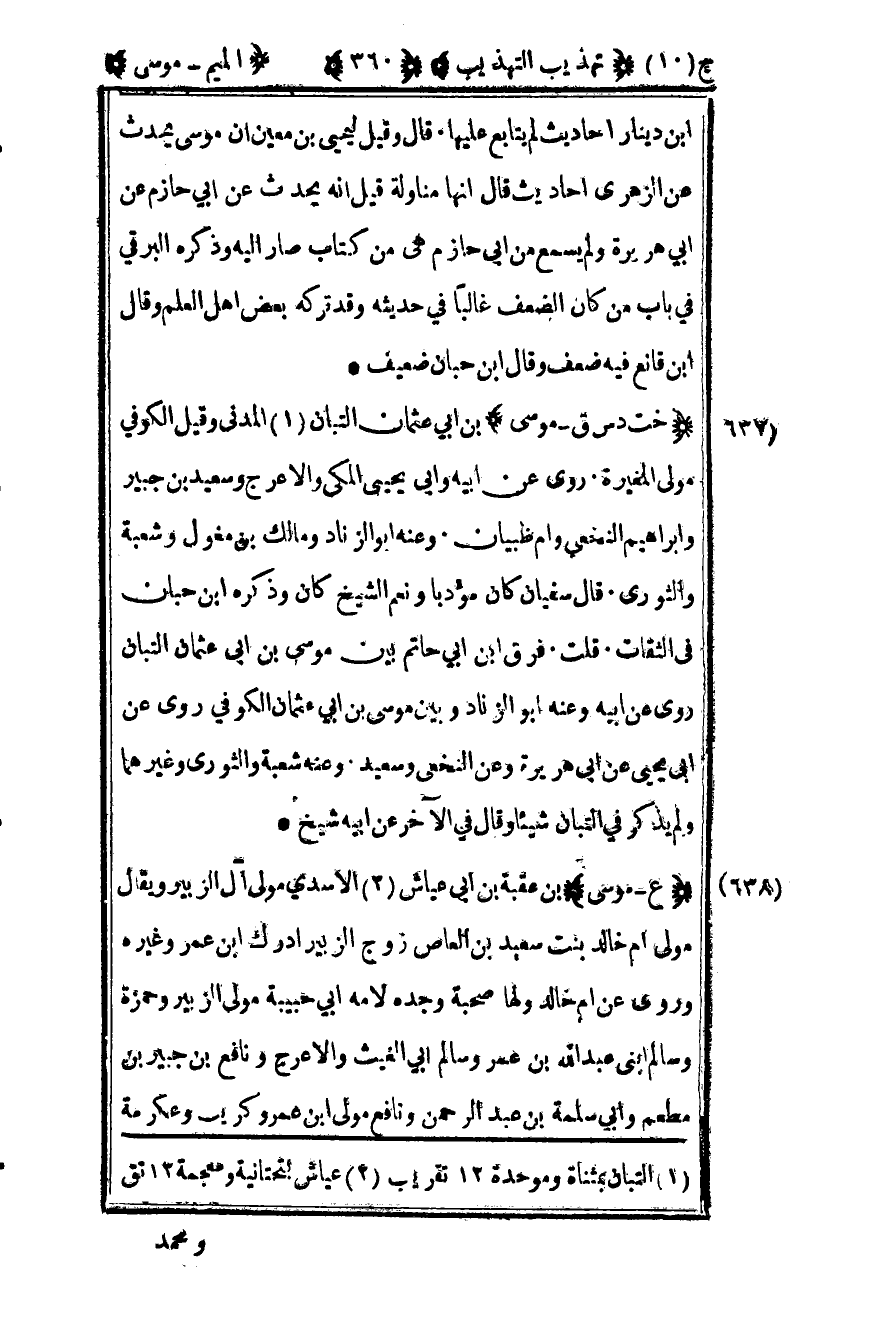 ج(١٠) ﴿ تهذيب التهذيب ﴾ ﴿ ٣٦٠ ﴾ ﴿ الميم ـ موسى ﴾
ابن دينار احاديث لم يتابع عليها ٠ قال وقيل ليحيى بن معين ان موسى يحدث
عن الزهرى احاديث قال انها مناولة قيل انه يحدث عن ابي حازم عن
ابي هريرة ولم يسمع من ابي حازم هى من كتاب صار اليه وذكره البرقي
في باب من كان الضعف غالبا في حديثه وقد تركه بعض اهل العلم وقال
ابن قانع فيه ضعف وقال ابن حبان ضعيف •
(٦٣٧) ﴿ خت د س ق ـ موسى ﴾ بن ابي عثمان التبان (١) المدنى وقيل الكوفي
مولى المغيرة ٠ روى عن ابيه وابي يحيى المكى والاعرج وسعيد بن جبير
وابراهيم النخعي وام ظبيان ٠ وعنه ابو الزناد ومالك بن مغول وشعبة
والثورى ٠ قال سفيان كان مؤدبا ونعم الشيخ كان وذكره ابن حبان
فى الثقات ٠ قلت ٠ فرق ابن ابي حاتم بين موسى بن ابى عثمان التبان
روى عن ابيه وعنه ابو الزناد وبين موسى بن ابي عثمان الكوفي روى عن
ابى يحيى عن ابى هريرة وعن النخعى وسعيد ٠ وعنه شعبة والثورى وغيرهما
ولم يذكر في التبان شيئا وقال في الآخر عن ابيه شيخ •
(٦٣٨) ﴿ ع ـ موسى ﴾ بن عقبة بن ابى عياش (٢) الاسدي مولى آل الزبير ويقال
مولى ام خالد بنت سعيد بن العاص زوج الزبير ادرك ابن عمر وغيره
وروى عن ام خالد ولها صحبة وجده لامه ابي حبيبة مولى الزبير وحمزة
وسالم ابنى عبدالله بن عمر وسالم ابي الغيث والاعرج ونافع بن جبير بن
مطعم وابي سلمة بن عبد الرحمن ونافع مولى ابن عمر وكريب وعكرمة
(١) التبان بمثناة وموحدة ١٢ تقريب (٢) عياش بتحتانية ومعجمة ١٢ تق
ومحمد